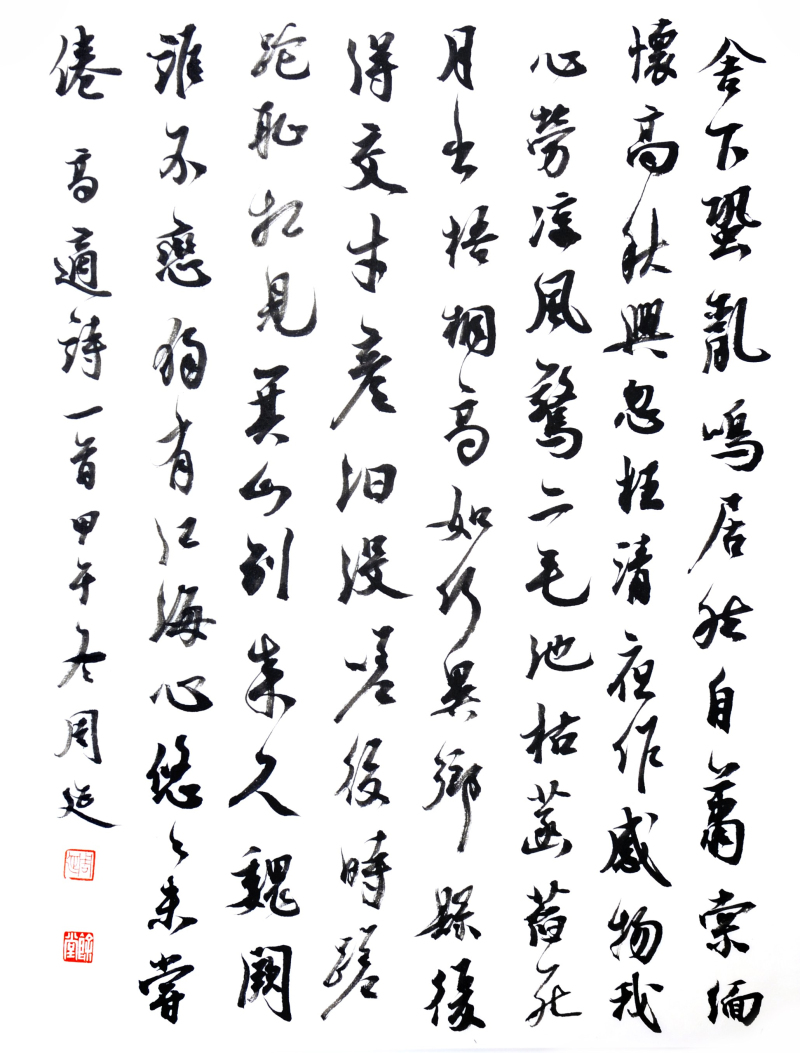 舍下蛩亂鳴居然自蕭索緬
懷高秋興忽枉清夜作感物我
心勞涼風驚二毛池枯菡萏死
月出梧桐高如何異鄉縣復
得交才彥汩沒嗟後時蹉
跎恥相見箕山別來久魏闕
誰不戀獨有江海心悠々未嘗
倦 高適詩一首甲午冬周延